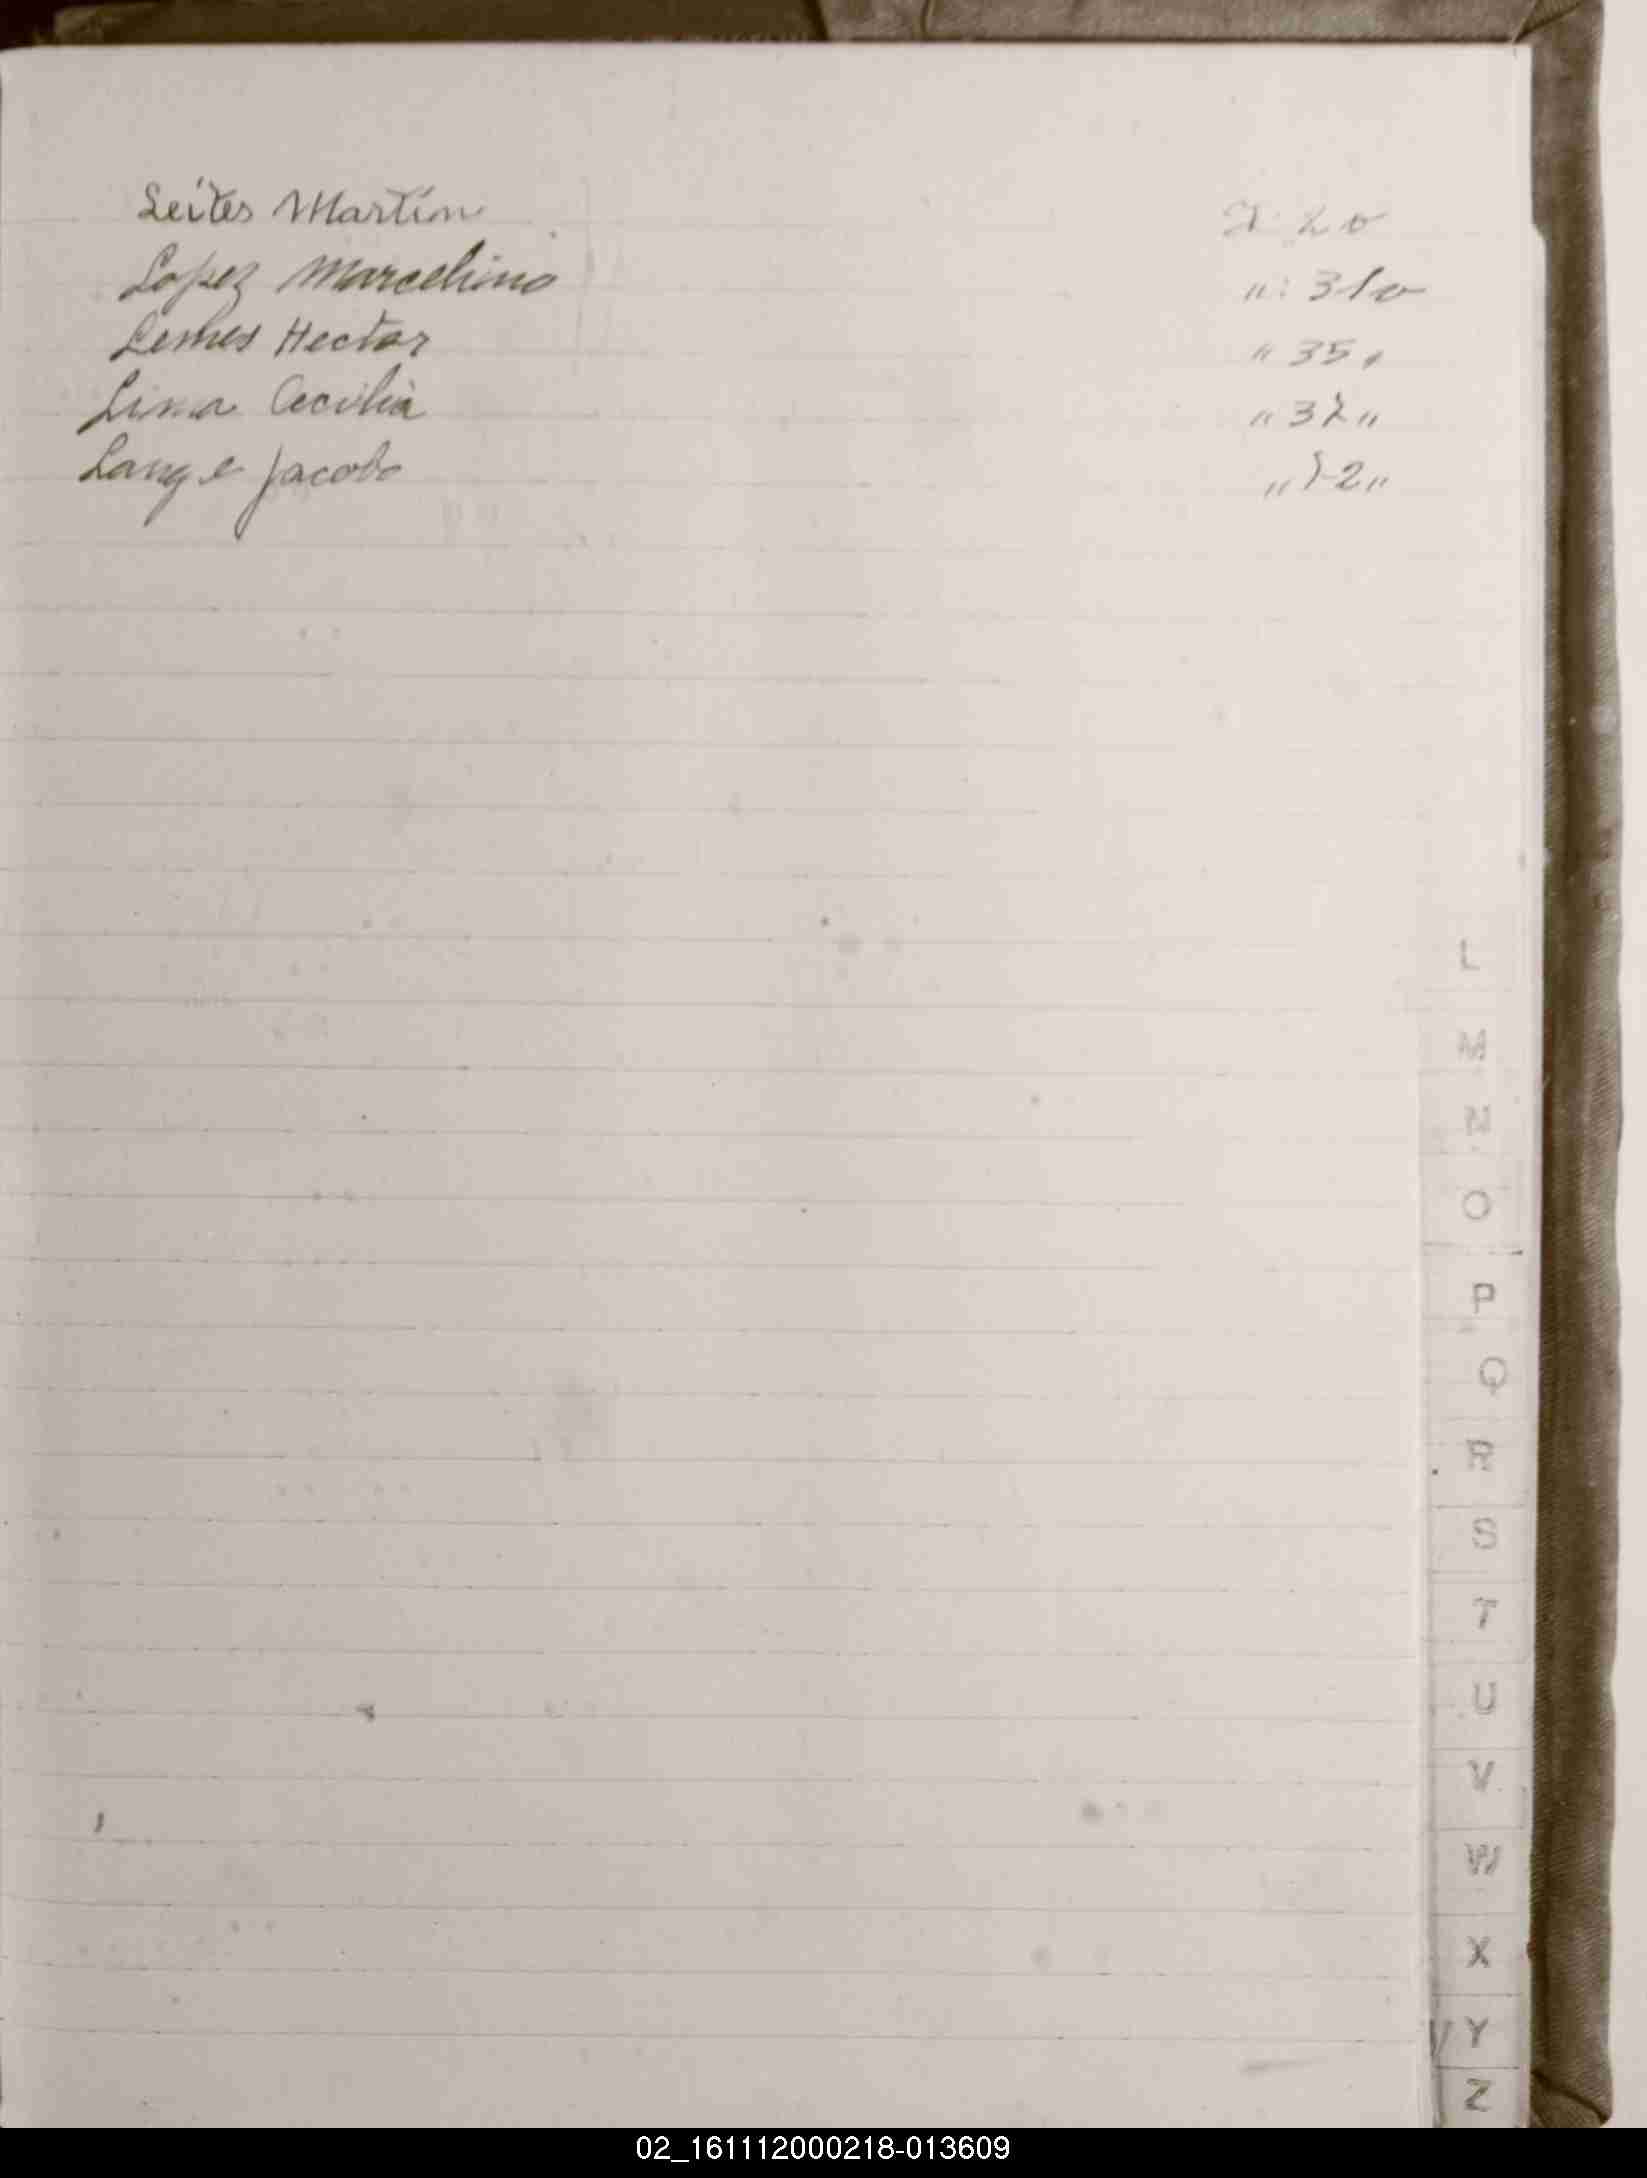 Leites Martín
Lopez Marcelino „: 310
Lemes Hector „ 35 „
Lima Cecilia „ 37 „
Lange Jacobo „ 72 „
L
M
N
O
P
Q
R
S
T
U
V
W
X
Y
Z
02_161112000218-013609